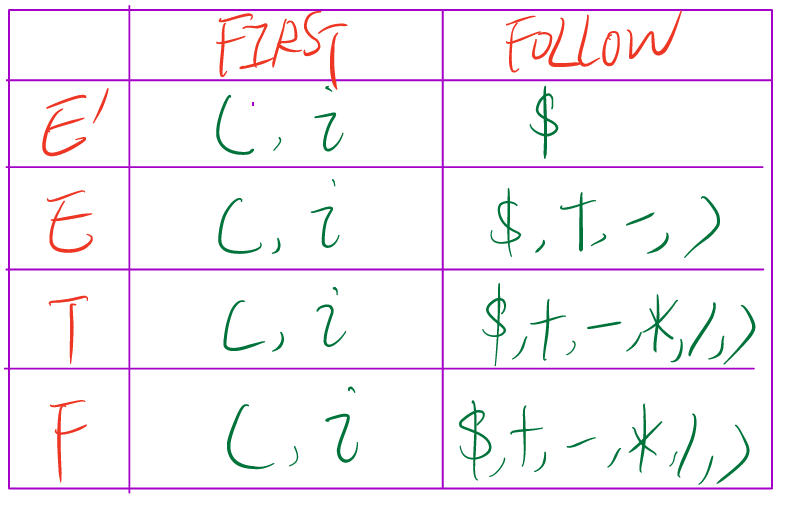 FIRST FOLLOW
E' (, i $
E (, i $, +, -, )
T (, i $, +, -, *, /, )
F (, i $, +, -, *, /, )